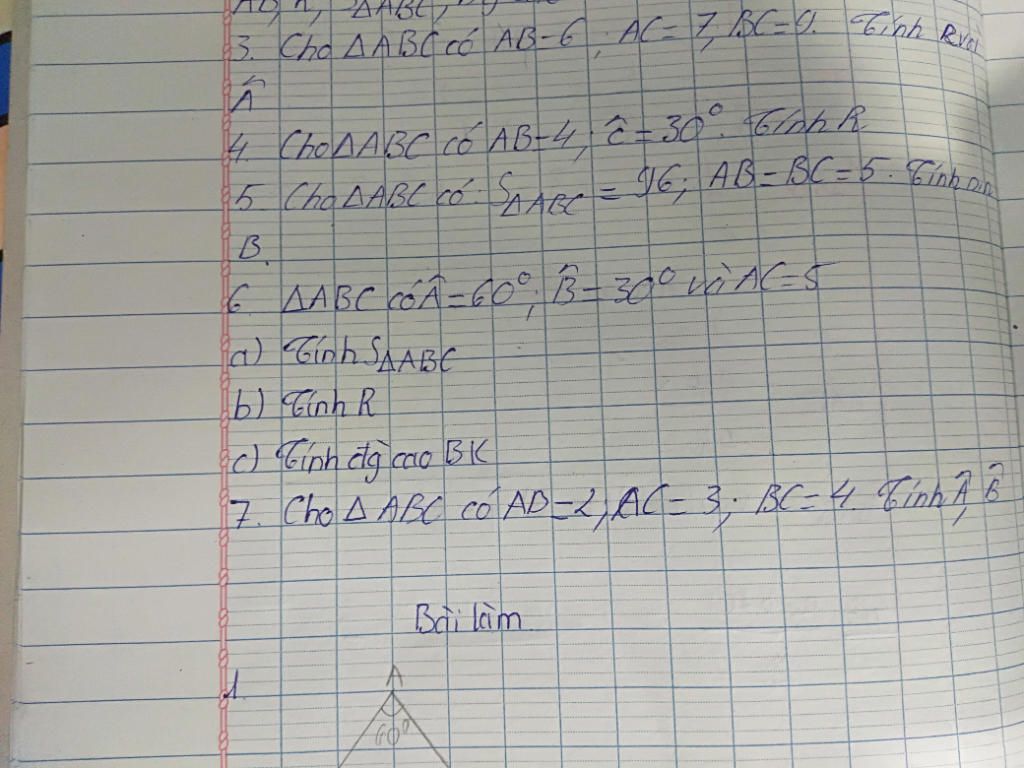 S△ABC,
3. Cho △ABC có AB=6; AC=7, BC=9. Tính R và
Â
4. Cho △ABC có AB=4; Ĉ=30°. Tính R
5 Cho △ABC có: S△ABC = 96; AB=BC=5. Tính sin
B.
6. △ABC có Â=60°; B̂=30° và AC=5
a) Tính S△ABC
b) Tính R
c) Tính đg cao BK
7. Cho △ABC có AB=2; AC=3; BC=4. Tính Â, B̂
Bài làm
1.
A
60°